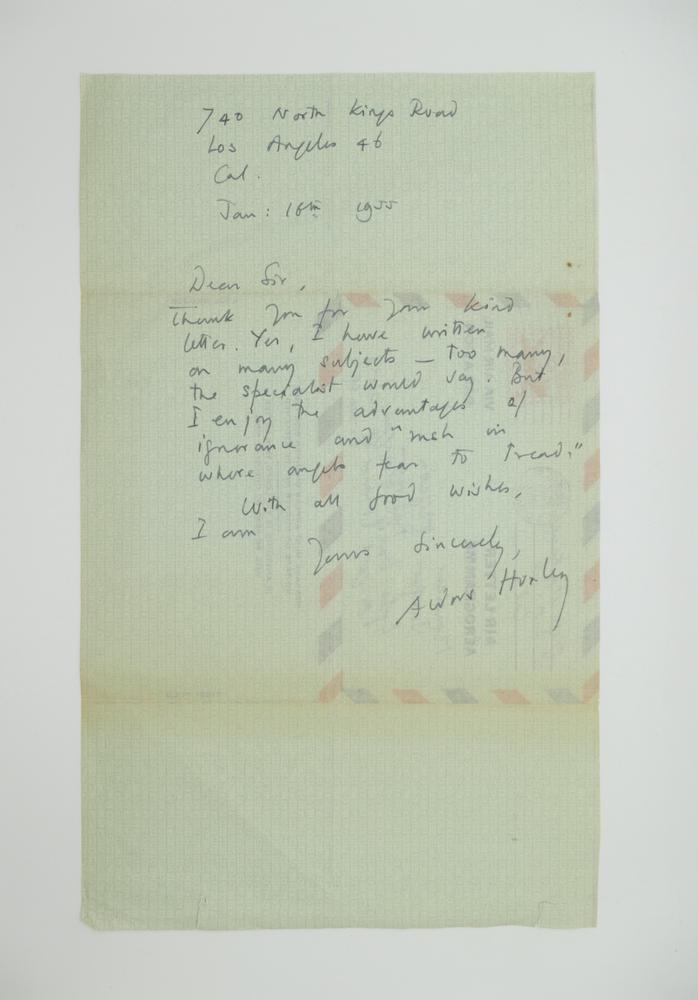 740 North Kings Road
Los Angeles 46
Cal.
Jan: 16th 1955
Dear Sir,
Thank you for your kind
letter. Yes, I have written
on many subjects — too many,
the specialist would say. But
I enjoy the advantages of
ignorance and "rush in
where angels fear to tread."
With all good wishes,
I am
Yours sincerely,
Aldous Huxley
AEROGRAMME
AIR LETTER